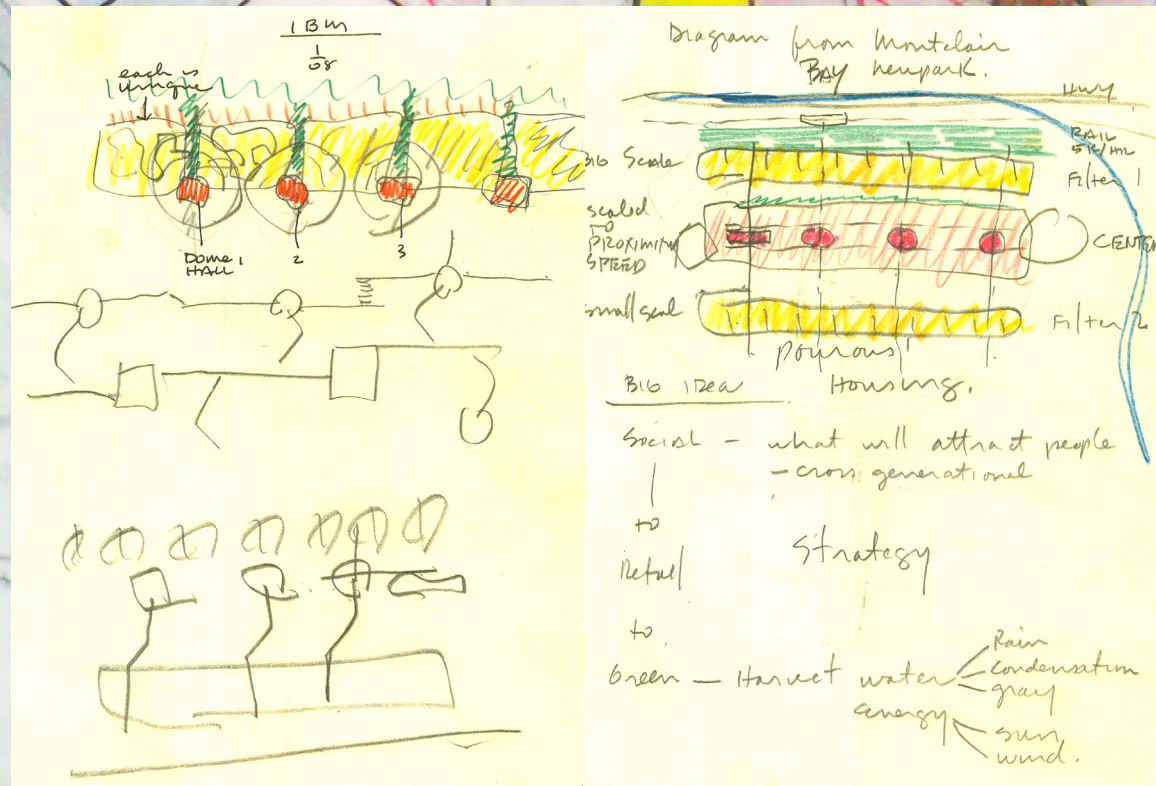 IBM
1
08
each is
unique
Dome 1
HALL
2
3
Diagram from Montclair
BAY
HWY
RAIL
BIG Scale
Filter 1
scaled
TO
PROXIMITY
SPEED
CENTER
small scal
Filter 2
pourous
Housing.
BIG IDEA
Social - what will attract people
- cross generational
to
Strategy
Retail
to
Green - Harvest water
Rain
condensation
gray
energy
sun
wind.